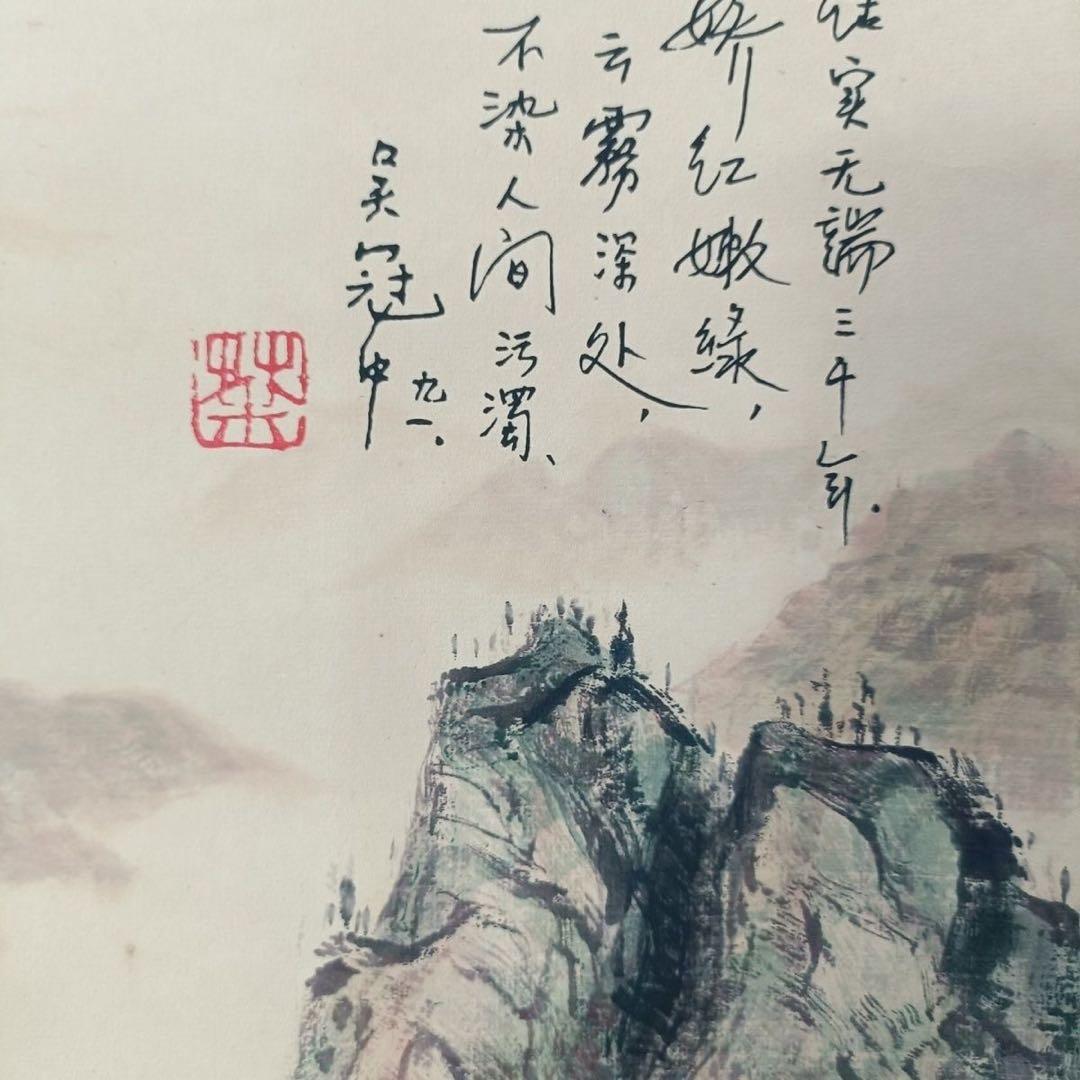 结实无端三千年.
娇红嫩绿,
云霧深处,
不染人间污濁、
吴冠中
九一.